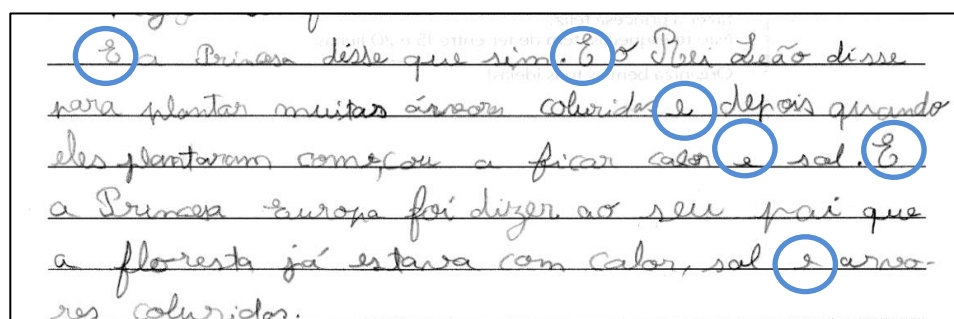 E a Princesa disse que sim. E o Rei Leão disse
para plantar muitas árvores coluridas e depois quando
eles plantaram começou a ficar calor e sal. E
a Princesa Europa foi dizer ao seu pai que
a floresta já estava com calor, sal e arvo-
res coluridas.